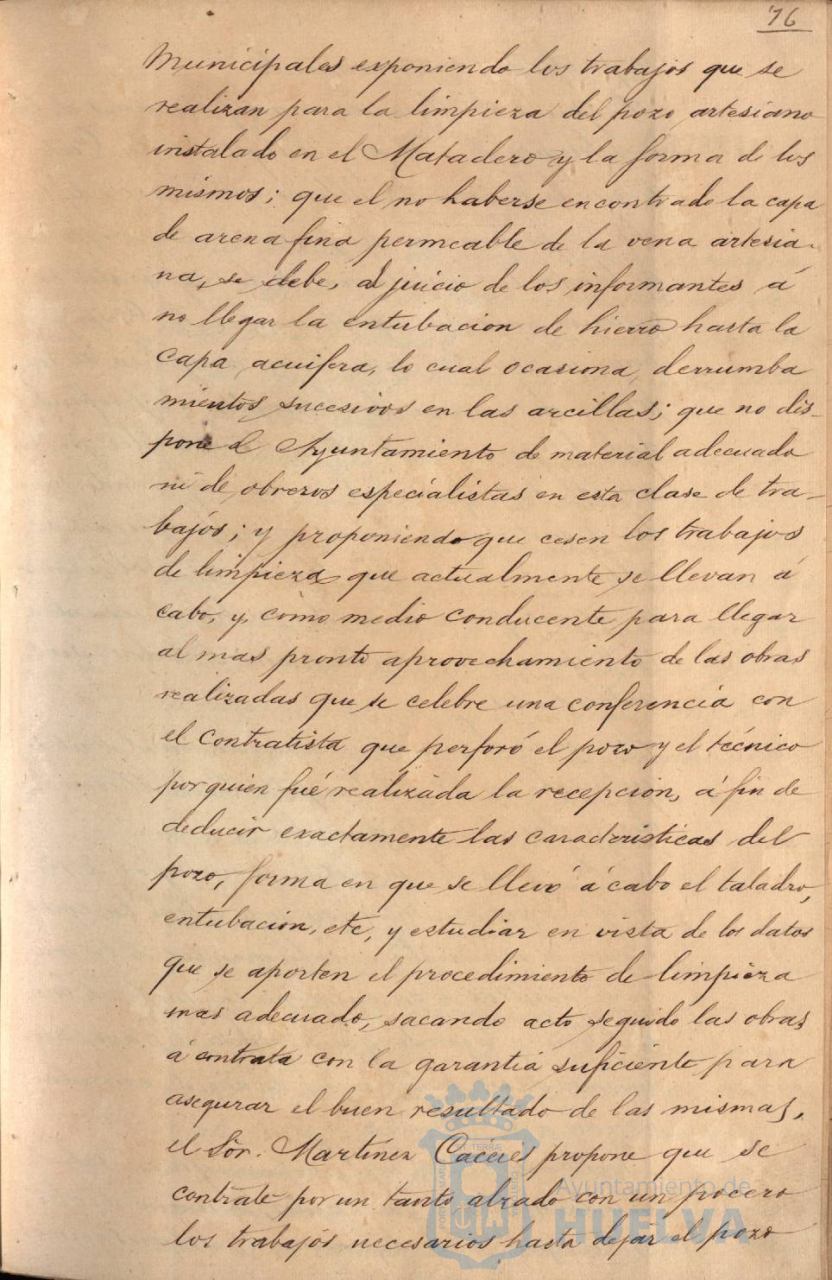 76
Municipales exponiendo los trabajos que se
realizan para la limpieza del pozo artesiano
instalado en el Matadero y la forma de los
mismos; que el no haberse encontrado la capa
de arena fina permeable de la vena artesia-
na, se debe, al juicio de los informantes á
no llegar la entubacion de hierro hasta la
capa acuifera, lo cual ocasiona, derrumba
mientos sucesivos en las arcillas; que no dis-
pone el Ayuntamiento de material adecuado
ni de obreros especialistas en esta clase de tra-
bajos; y proponiendo que cesen los trabajos
de limpieza que actualmente se llevan á
cabo, y, como medio conducente para llegar
al mas pronto aprovechamiento de las obras
realizadas que se celebre una conferencia con
el contratista que perforó el pozo y el técnico
por quien fué realizada la recepción, á fin de
deducir exactamente las caracteristicas del
pozo, forma en que se llevó á cabo el taladro,
entubación, etc, y estudiar en vista de los datos
que se aporten el procedimiento de limpieza
mas adecuado, sacando acto seguido las obras
á contrata con la garantía suficiente para
asegurar el buen resultado de las mismas,
el Sór. Martínez Cáceres propone que se
contrate por un tanto alzado con un pocero
los trabajos necesarios hasta dejar el pozo
Ayuntamiento de
HUELVA